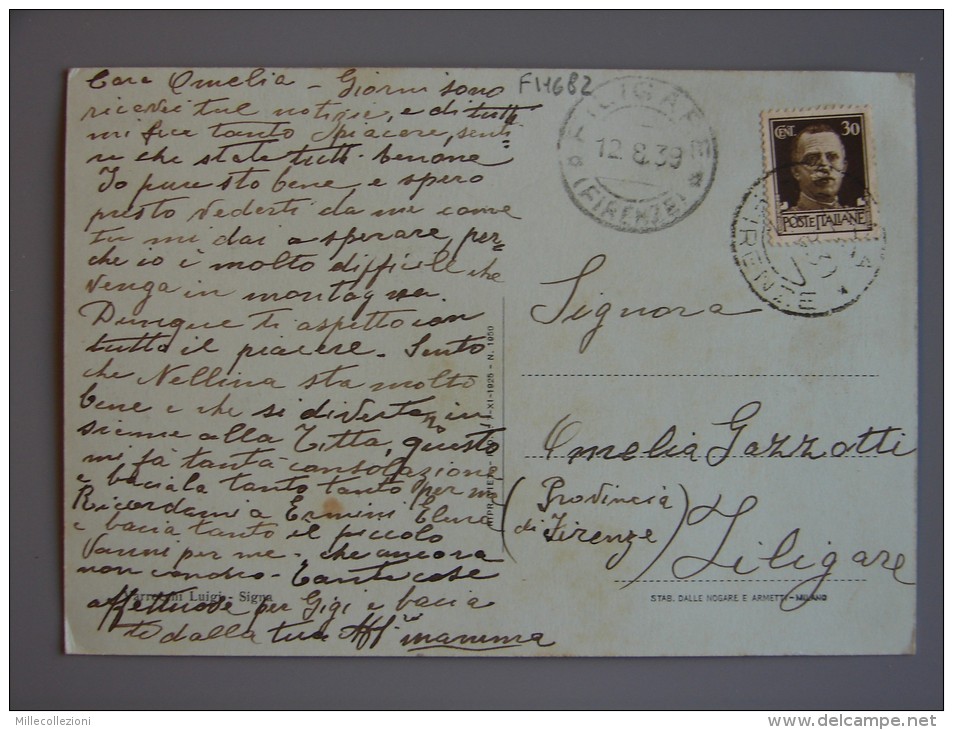 Cara Omelia - Giorni sono
ricevei tue notizie, e di tutti
mi fece tanto piacere, senti=
re che state tutti benone
Io pure sto bene, e spero
presto vederti da me come
tu mi dai a sperare, per=
che io è molto difficile che
venga in montagna.
Dunque ti aspetto con
tutto il piacere - Sento
che Nellina sta molto
bene e che si divertano in
sieme alla Titta, questo
mi fà tanta consolazione
e baciala tanto tanto per me
Ricordami a Ermini Elena
e bacia tanto il piccolo
Vanni per me - che ancora
non conosco - Tante cose
affettuose per Gigi e bacia
ti dalla tua Aff. mamma
Luigi - Signa
F11682
FILIGARE
12.8.39
(FIRENZE)
CENT. 30
POSTE ITALIANE
FIRENZE
-XI-1925 - N. 1050
Signora
Omelia Gazzotti
(Provincia
di Firenze)
Filigare
STAB. DALLE NOGARE E ARMETTI - MILANO
Millecollezioni
www.delcampe.net